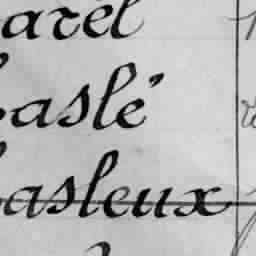 arel
Laslé
Lasleux